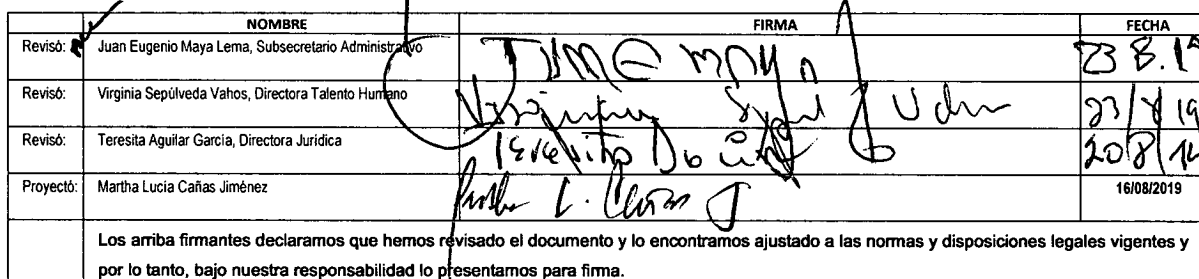 NOMBRE FIRMA FECHA
Revisó: Juan Eugenio Maya Lema, Subsecretario Administrativo 23 8.19
Revisó: Virginia Sepúlveda Vahos, Directora Talento Humano 23/8/19
Revisó: Teresita Aguilar García, Directora Jurídica 20/8/19
Proyectó: Martha Lucía Cañas Jiménez 16/08/2019
Los arriba firmantes declaramos que hemos revisado el documento y lo encontramos ajustado a las normas y disposiciones legales vigentes y
por lo tanto, bajo nuestra responsabilidad lo presentamos para firma.